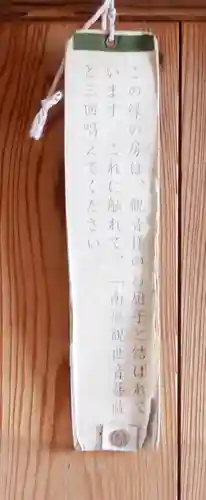 この緑の房は、観音様の御厨子と結ばれて
います。これに触れて、「南無観世音菩薩」
と三回唱えてください